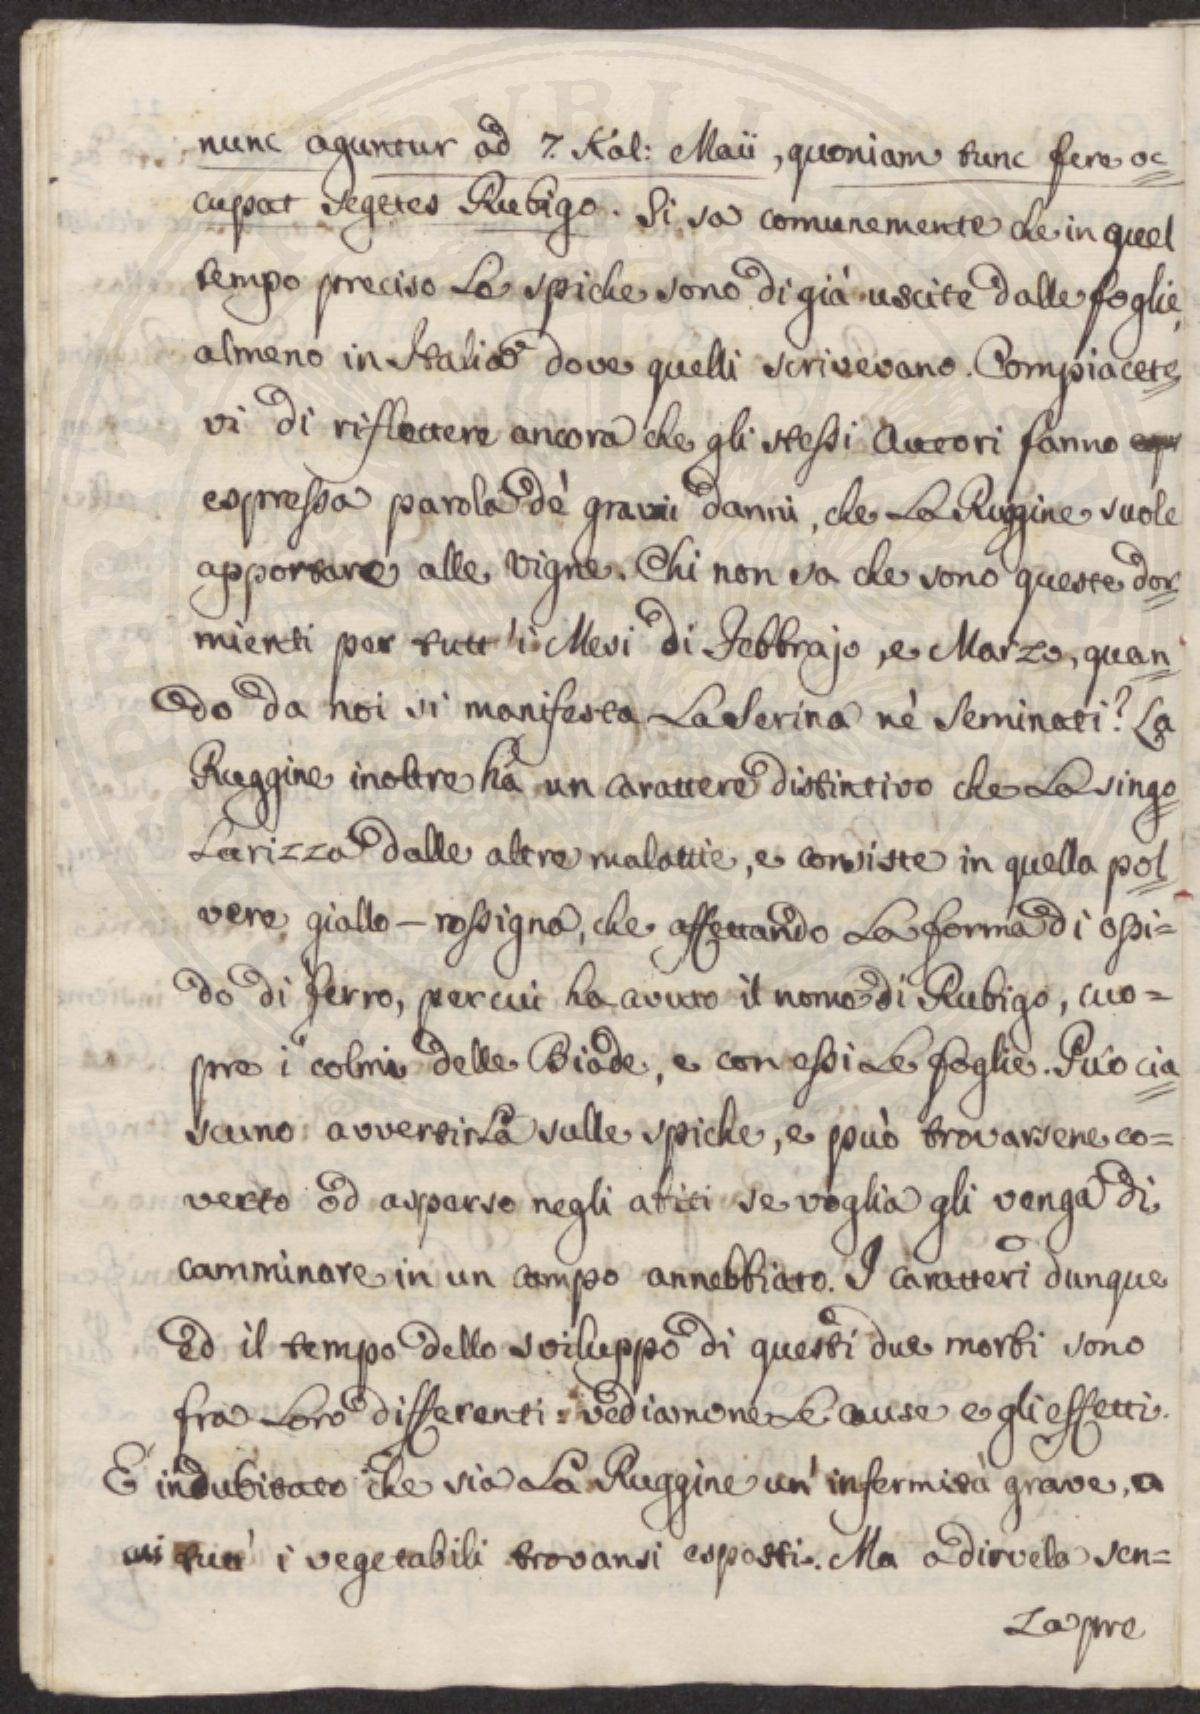 nunc aguntur ad 7. Kal: Maii, quoniam tunc fere oc=
cupat segetes Rubigo. Si sa comunemente che in quel
tempo preciso le spiche sono di già uscite dalle foglie,
almeno in Italia dove quelli scrivevano. Compiacete=
vi di riflettere ancora che gli stessi Autori fanno
espressa parola dè gravi danni, che la Ruggine suole
apportare alle vigne. Chi non sa che sono queste dor=
mienti per tutt'i Mesi di Febbrajo, e Marzo, quan=
do da noi si manifesta la Serina nè Seminati? La
Ruggine inoltre hà un carattere distintivo che la singo=
larizza dalle altre malattie, e consiste in quella pol=
vere giallo-rossigna, che affettando la forma di ossi=
do di ferro, per cui ha avuto il nome di Rubigo, cuo=
pre i colmi delle Biade, e con essi le foglie. Può cia=
scuno avvertirla sulle spiche, e può trovarsene co=
verto ed asperso negli abiti se voglia gli venga di
camminare in un campo annebbiato. I caratteri dunque
ed il tempo dello sviluppo di questi due morbi sono
fra loro differenti: vediamone le cause e gli effetti.
È indubitato che sia la Ruggine un'infermità grave, a
cui tutt'i vegetabili trovansi esposti. Ma a dirvela sen=
za pre